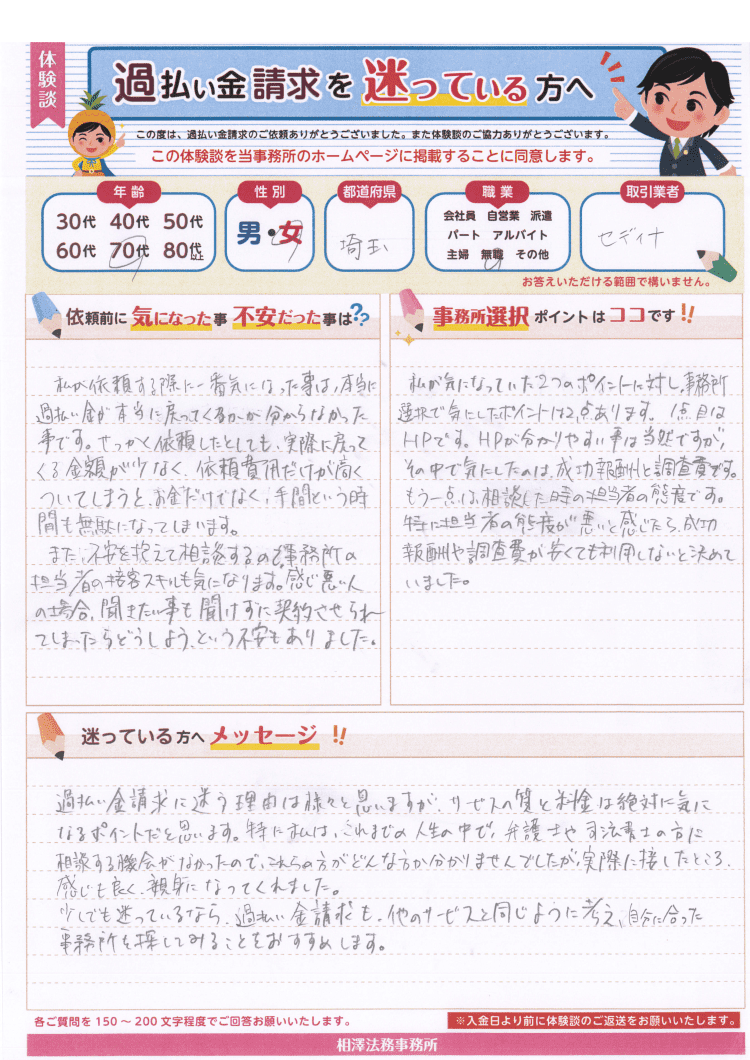 体験談
過払い金請求を迷っている方へ
この度は、過払い金請求のご依頼ありがとうございました。また体験談のご協力ありがとうございます。
この体験談を当事務所のホームページに掲載することに同意します。
年齢
30代 40代 50代
60代 70代 80代以上
性別
男・女
都道府県
埼玉
職業
会社員 自営業 派遣
パート アルバイト
主婦 無職 その他
取引業者
セディナ
お答えいただける範囲で構いません。
依頼前に気になった事不安だった事は??
私が依頼する際に一番気になった事は、本当に
過払い金が本当に戻ってくるかが分からなかった
事です。せっかく依頼したとしても、実際に戻って
くる金額が少なく、依頼費用だけが高く
ついてしまうと、お金だけでなく、手間という時
間も無駄になってしまいます。
また、不安を抱えて相談するのも事務所の
担当者の接客スキルも気になります。感じ悪い人
の場合、聞きたい事も聞けずに契約させられ
てしまったらどうしよう、という不安もありました。
事務所選択ポイントはココです!!
私が気になっていた2つのポイントに対し、事務所
選択で気にしたポイントは2点あります。1点目は
HPです。HPが分かりやすい事は当然ですが、
その中で気にしたのは、成功報酬と調査費です。
もう一点は、相談した時の担当者の態度です。
特に担当者の態度が悪いと感じたら、成功
報酬や調査費が安くても利用しないと決めて
いました。
迷っている方へメッセージ!!
過払い金請求に迷う理由は様々と思いますが、サービスの質と料金は絶対に気に
なるポイントだと思います。特に私は、これまでの人生の中で、弁護士や司法書士の方に
相談する機会がなかったので、これらの方がどんな方か分かりませんでしたが、実際に接したところ、
感じも良く、親身になってくれました。
少しでも迷っているなら、過払い金請求も、他のサービスと同じように考え、自分に合った
事務所を探してみることをおすすめします。
各ご質問を150〜200文字程度でご回答お願いいたします。
※入金日より前に体験談のご返送をお願いいたします。
相澤法務事務所